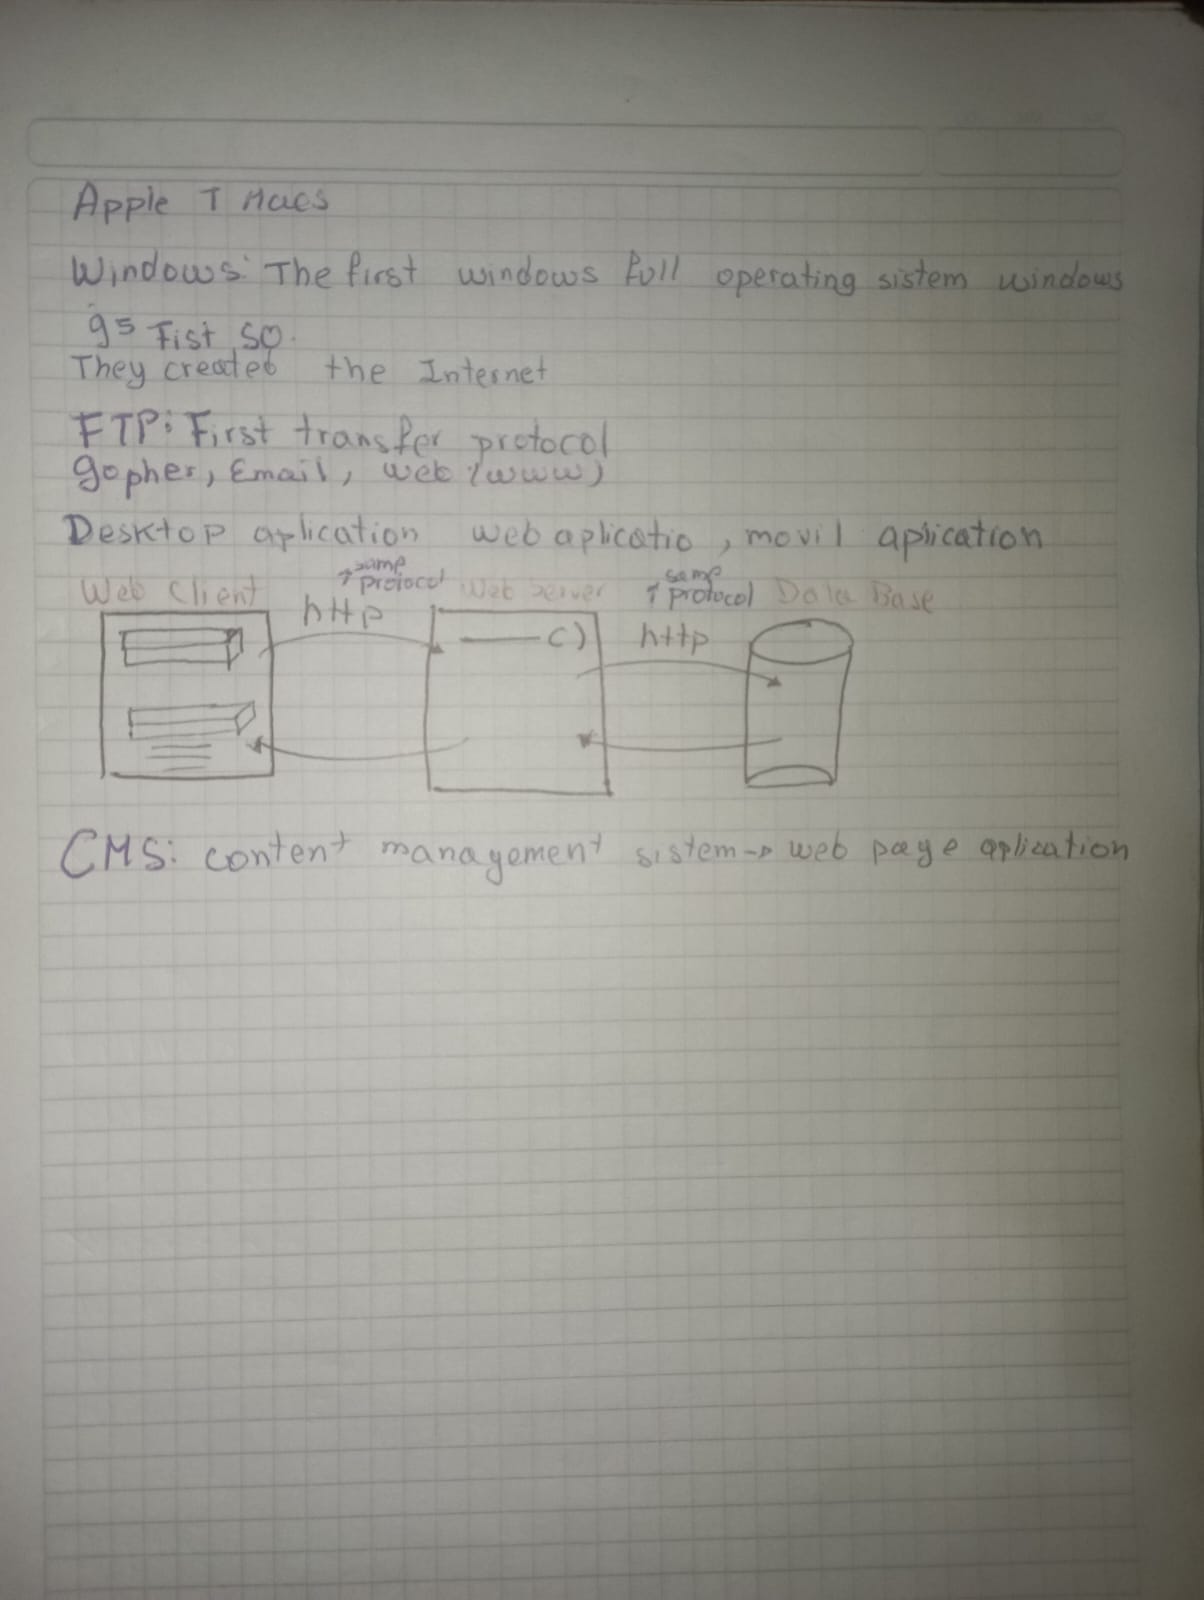 Apple T Macs
Windows: The first windows full operating sistem windows
95 Fist SO.
They created the Internet
FTP: First transfer protocol
gopher, Email, web (www)
Desktop aplication web aplicatio, movil aplication
same same
protocol protocol
Web Client Web Server Data Base
http http
CMS: content management sistem → web page aplication